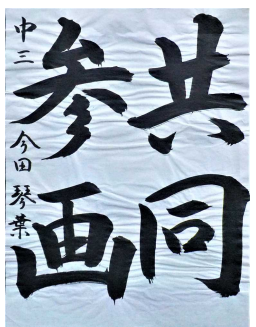 共同
参画
中三 今田琴葉